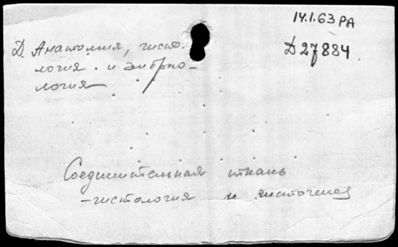 14.1.63 РА
Д 27884
Д. Анатомия, гисто-
логия и эмбрио-
логия
Соединительная ткань
- гистология и гистогенез